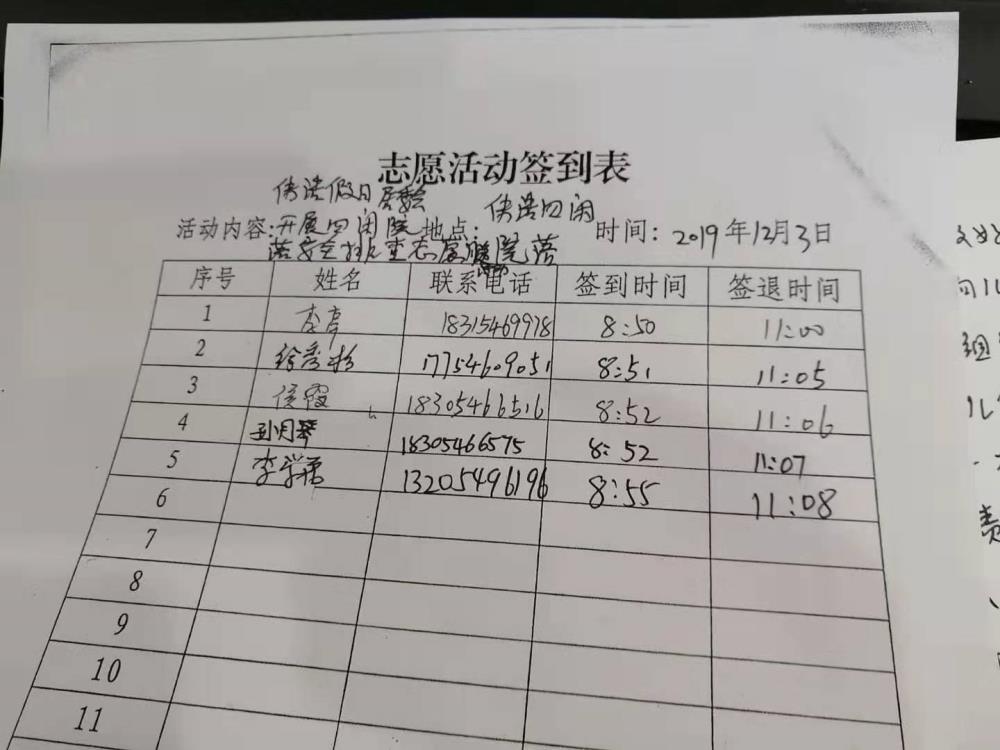 志愿活动签到表
佳诺假日居委会 佳诺四闲
活动内容:开展四闲院地点: 时间: 2019年12月3日
落安全排查
序号 姓名 联系电话 签到时间 签退时间
1 李亭 18315469978 8:50 11:00
2 17754609051 8:51 11:05
3 侯霞 18305466516 8:52 11:06
4 孙月琴 18305466575 8:52 11:07
5 李学 13205496196 8:55 11:08
6
7
8
9
10
11
责